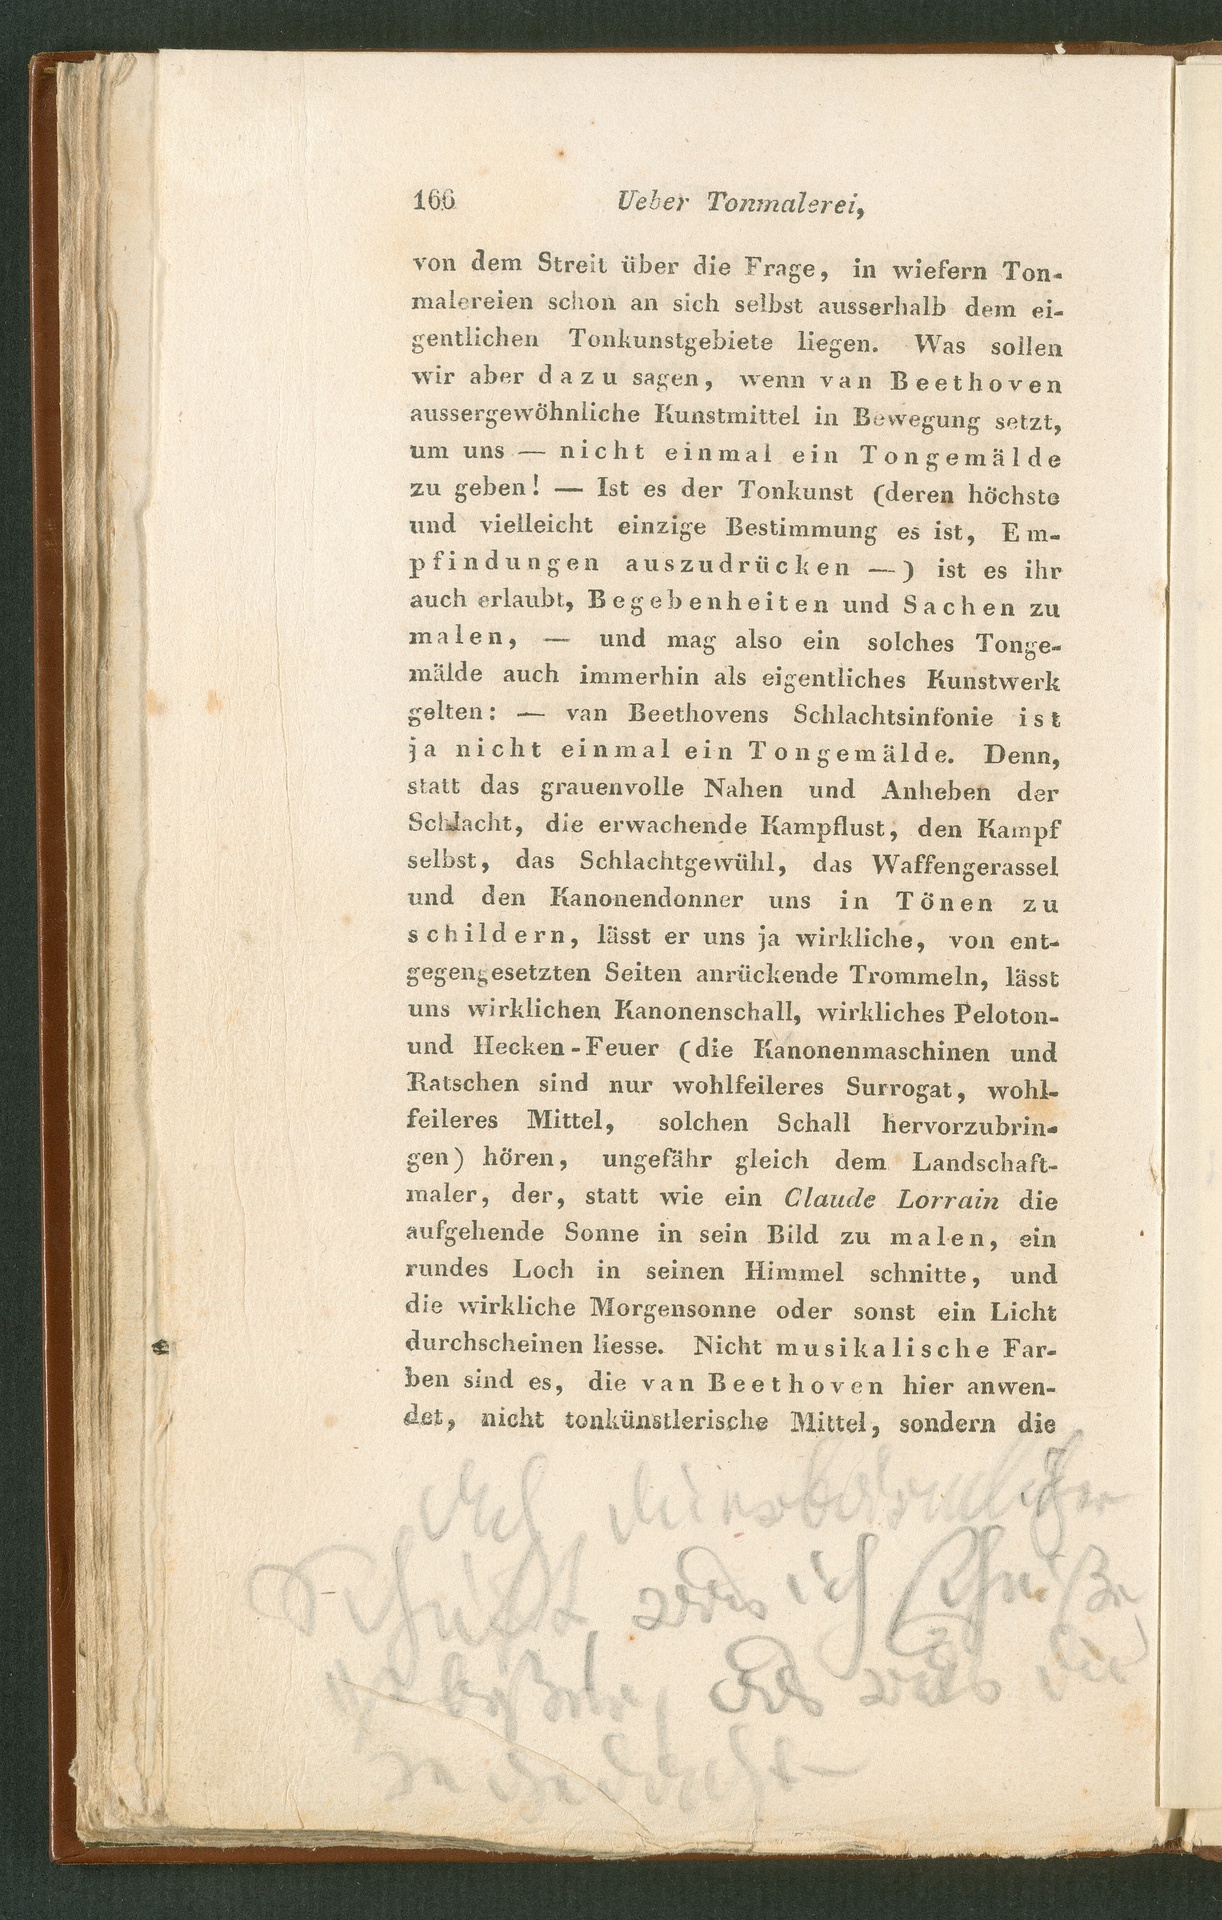 166 Ueber Tonmalerei,
von dem Streit über die Frage, in wiefern Ton-
malereien schon an sich selbst ausserhalb dem ei-
gentlichen Tonkunstgebiete liegen. Was sollen
wir aber dazu sagen, wenn van Beethoven
aussergewöhnliche Kunstmittel in Bewegung setzt,
um uns — nicht einmal ein Tongemälde
zu geben! — Ist es der Tonkunst (deren höchste
und vielleicht einzige Bestimmung es ist, Em-
pfindungen auszudrücken —) ist es ihr
auch erlaubt, Begebenheiten und Sachen zu
malen, — und mag also ein solches Tonge-
mälde auch immerhin als eigentliches Kunstwerk
gelten: — van Beethovens Schlachtsinfonie ist
ja nicht einmal ein Tongemälde. Denn,
statt das grauenvolle Nahen und Anheben der
Schlacht, die erwachende Kampflust, den Kampf
selbst, das Schlachtgewühl, das Waffengerassel
und den Kanonendonner uns in Tönen zu
schildern, lässt er uns ja wirkliche, von ent-
gegengesetzten Seiten anrückende Trommeln, lässt
uns wirklichen Kanonenschall, wirkliches Peloton-
und Hecken-Feuer (die Kanonenmaschinen und
Ratschen sind nur wohlfeileres Surrogat, wohl-
feileres Mittel, solchen Schall hervorzubrin-
gen) hören, ungefähr gleich dem Landschaft-
maler, der, statt wie ein Claude Lorrain die
aufgehende Sonne in sein Bild zu malen, ein
rundes Loch in seinen Himmel schnitte, und
die wirkliche Morgensonne oder sonst ein Licht
durchscheinen liesse. Nicht musikalische Far-
ben sind es, die van Beethoven hier anwen-
det, nicht tonkünstlerische Mittel, sondern die
Ach du erbärmlicher
Schuft, was ich scheiße
beßer, als was du
je gedacht